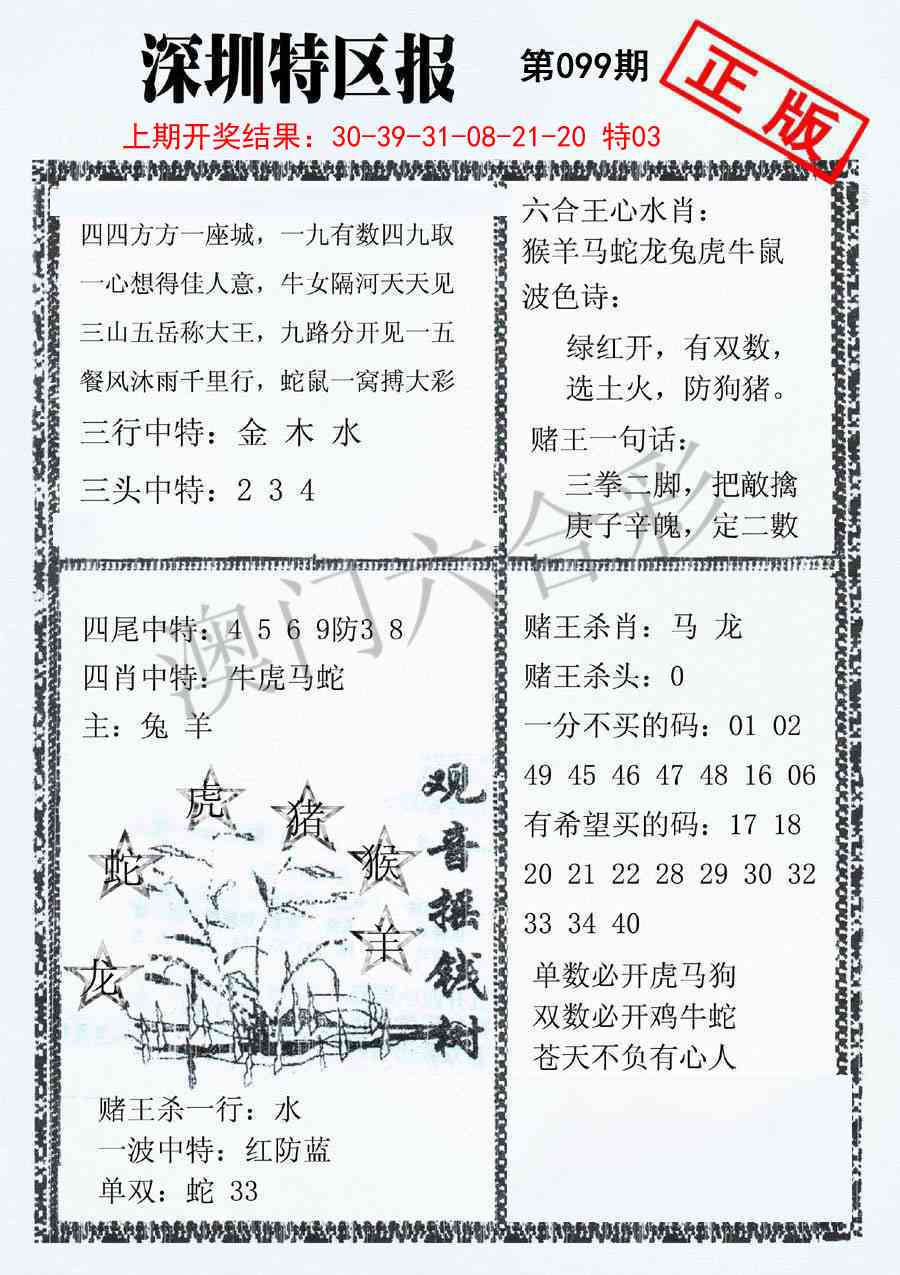 深圳特区报
第099期
正版
上期开奖结果：30-39-31-08-21-20 特03
四四方方一座城，一九有数四九取
一心想得佳人意，牛女隔河天天见
三山五岳称大王，九路分开见一五
餐风沐雨千里行，蛇鼠一窝搏大彩
三行中特：金 木 水
三头中特：2 3 4
六合王心水肖：
猴羊马蛇龙兔虎牛鼠
波色诗：
绿红开，有双数，
选土火，防狗猪。
赌王一句话：
三拳二脚，把敵擒
庚子辛魄，定二數
澳门六合彩
四尾中特：4 5 6 9防3 8
四肖中特：牛虎马蛇
主：兔 羊
虎
猪
蛇
猴
羊
龙
观音摇钱树
赌王杀一行：水
一波中特：红防蓝
单双：蛇 33
赌王杀肖：马 龙
赌王杀头：0
一分不买的码：01 02
49 45 46 47 48 16 06
有希望买的码：17 18
20 21 22 28 29 30 32
33 34 40
单数必开虎马狗
双数必开鸡牛蛇
苍天不负有心人